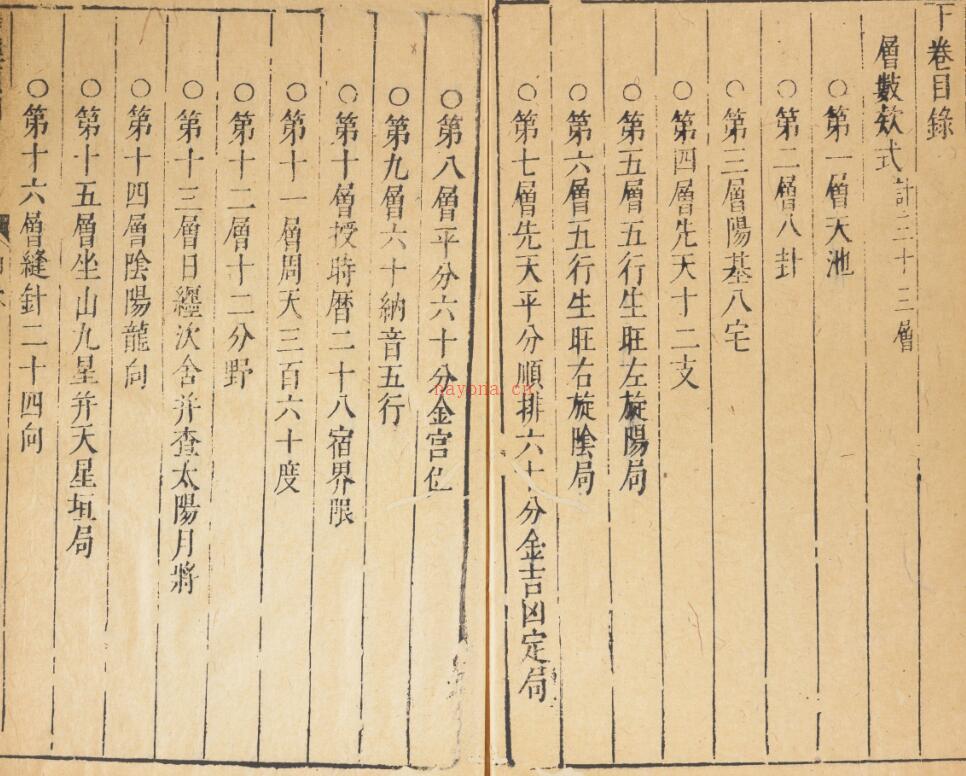 下卷目錄
層數欵式 計三十三層
○第一層天池
○第二層八卦
○第三層陽基八宅
○第四層先天十二支
○第五層五行生旺左旋陽局
○第六層五行生旺右旋陰局
○第七層先天平分順排六十分金吉凶定局
○第八層平分六十分金宫位
○第九層六十納音五行
○第十層授時曆二十八宿界限
○第十一層周天三百六十度
○第十二層十二分野
○第十三層日纏次舍并查太陽月將
○第十四層陰陽龍向
○第十五層坐山九星并天星垣局
○第十六層縫針二十四向
nayona.cn